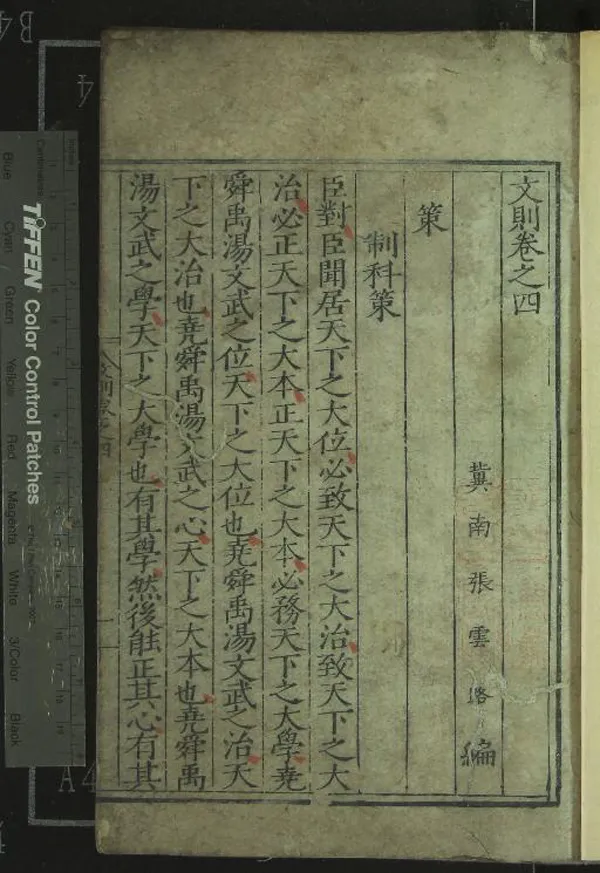 文則卷之四
冀南張雲路編
策
制科策
臣對臣聞居天下之大位必致天下之大治致天下之大
治必正天下之大本正天下之大本必務天下之大學堯
舜禹湯文武之位天下之大位也堯舜禹湯文武之治天
下之大治也堯舜禹湯文武之心天下之大本也堯舜禹
湯文武之學天下之大學也有其學然後能正其心有其
TIFFEN Color Control Patches
Blue
Cyan
Green
Yellow
Red
Magenta
White
3/Color
Black
Centimetres
B4
4
A4